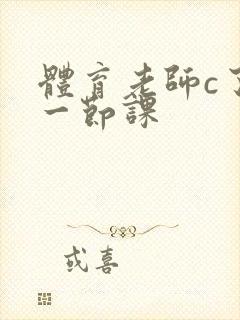 體育老師c了
一節課
或喜